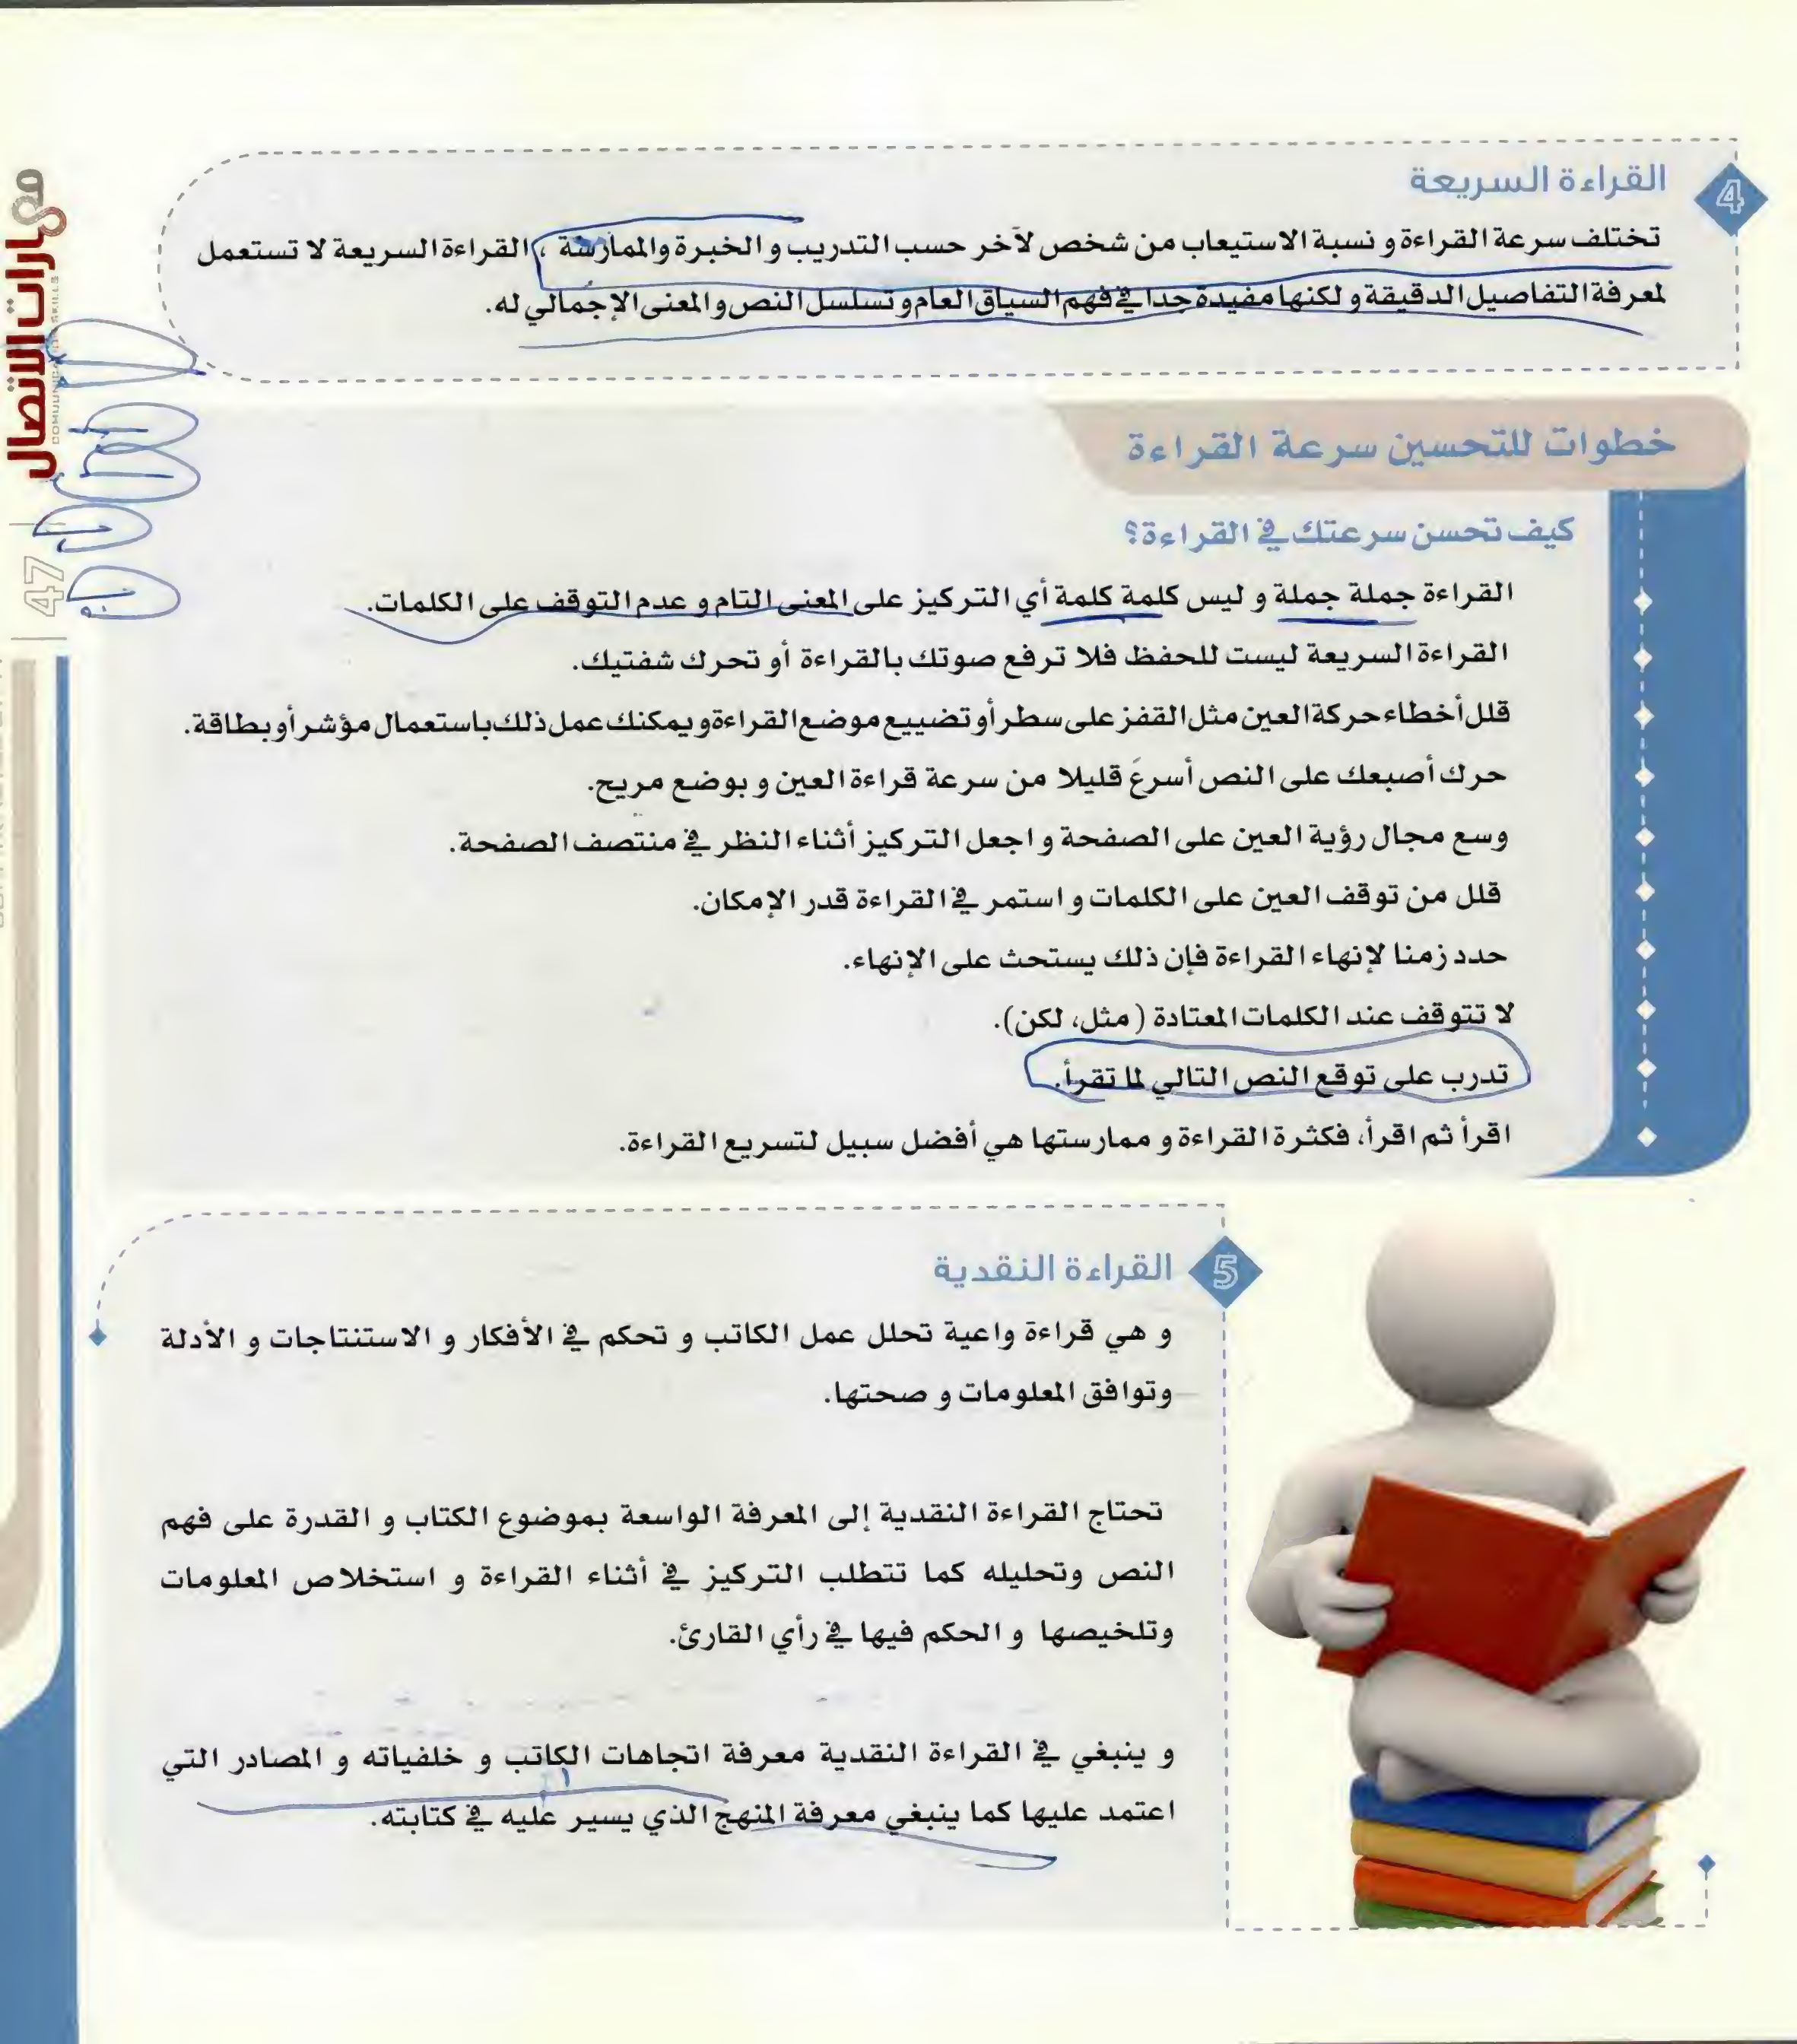 4
القراءة السريعة
تختلف سرعة القراءة و نسبة الاستيعاب من شخص لآخر حسب التدريب و الخبرة والممارسة ، القراءة السريعة لا تستعمل
لمعرفة التفاصيل الدقيقة و لكنها مفيدة جدا في فهم السياق العام و تسلسل النص و المعنى الإجمالي له.
خطوات للتحسين سرعة القراءة
كيف تحسن سرعتك في القراءة؟
القراءة جملة جملة و ليس كلمة كلمة أي التركيز على المعنى التام و عدم التوقف على الكلمات.
القراءة السريعة ليست للحفظ فلا ترفع صوتك بالقراءة أو تحرك شفتيك.
قلل أخطاء حركة العين مثل القفز على سطر أو تضييع موضع القراءة و يمكنك عمل ذلك باستعمال مؤشر أو بطاقة.
حرك أصبعك على النص أسرعَ قليلا من سرعة قراءة العين و بوضع مريح.
وسع مجال رؤية العين على الصفحة و اجعل التركيز أثناء النظر في منتصف الصفحة.
قلل من توقف العين على الكلمات و استمر في القراءة قدر الإمكان.
حدد زمنا لإنهاء القراءة فإن ذلك يستحث على الإنهاء.
لا تتوقف عند الكلمات المعتادة ( مثل، لكن).
تدرب على توقع النص التالي لما تقرأ.
اقرأ ثم اقرأ، فكثرة القراءة و ممارستها هي أفضل سبيل لتسريع القراءة.
5
القراءة النقدية
و هي قراءة واعية تحلل عمل الكاتب و تحكم في الأفكار و الاستنتاجات و الأدلة
وتوافق المعلومات و صحتها.
تحتاج القراءة النقدية إلى المعرفة الواسعة بموضوع الكتاب و القدرة على فهم
النص وتحليله كما تتطلب التركيز في أثناء القراءة و استخلاص المعلومات
وتلخيصها و الحكم فيها في رأي القارئ.
و ينبغي في القراءة النقدية معرفة اتجاهات الكاتب و خلفياته و المصادر التي
اعتمد عليها كما ينبغي معرفة المنهج الذي يسير عليه في كتابته.
مهارات الاتصال
COMMUNICATION SKILLS
47